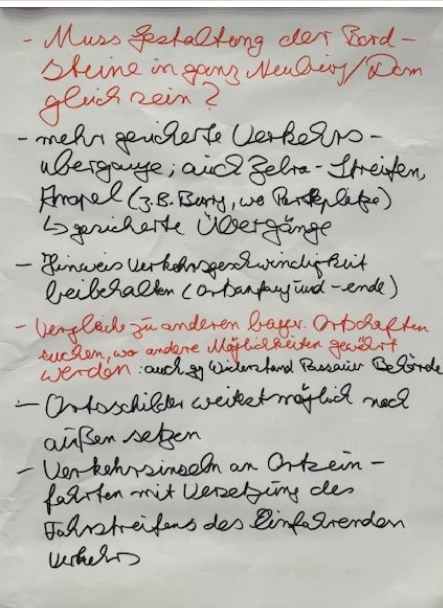 - Muss Gestaltung der Bord-
steine in ganz Neuburg/Dom
gleich sein?
- mehr gesicherte Verkehrs-
übergänge; auch Zebra-Streifen,
Ampel (z.B. Burg, wo Parkplätze)
↳ gesicherte Übergänge
- Hinweis Verkehrsgeschwindigkeit
beibehalten (Ortsanfang und -ende)
- Vergleich zu anderen bayr. Ortschaften
suchen, wo andere Möglichkeiten gewährt
werden: auch gg Widerstand Passauer Behörde
- Ortsschilder weitest möglich nach
außen setzen
- Verkehrsinseln an Ortsein-
fahrten mit Versetzung des
Fahrstreifens des Einfahrenden
Verkehrs